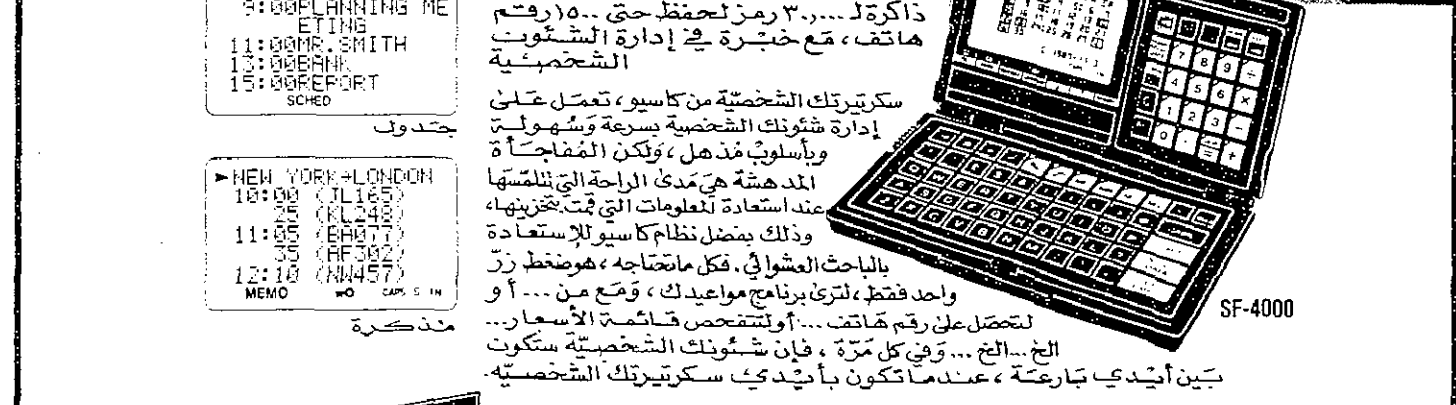 9:00PLANNING ME
ETING
11:00MR.SMITH
13:00BANK
15:00REPORT
SCHED
جَدول
►NEW YORK→LONDON
10:00 (JL165)
25 (KL248)
11:05 (BA077)
35 (AF302)
12:10 (NW457)
MEMO CAPS S IN
مذكرة
ذاكرة لـ ٣٠,٠٠٠ رمز لحفظ حتى ١٥٠٠ رقم
هاتف، مَع خبْرة في إدارة الشئون
الشخصيّة
سكرتيرتك الشخصيّة من كاسيو، تعمَل عَلىٰ
إدارة شئونك الشخصية بسرعة وَسُهولة
وبأسلوبْ مُذهل، وَلكن المُفاجَأة
المدهشة هيَ مَدىٰ الراحة التي نلمّسَها
عند استعادة المعلومات التي قمت بتخزينها،
وذلك بفضل نظام كاسيو للإستعادة
بالباحث العشوائي. فكل ماتحتاجه، هوضغط زرّ
واحد فقط، لترىٰ برنامج مواعيدك، وَمَع من ... أو
لتحصَل علىٰ رقم هَاتف ... أولتتفحص قائمة الأسعار...
الخ ... الخ ... وَفي كل مَرّة، فإن شئونك الشخصيّة ستكون
بَين أيْدي بَارعَة، عندما تكون بأيْدي سكرتيرتك الشخصيّه.
7 8 9 ÷
4 5 6 ×
1 2 3 −
0 . +
SF-4000